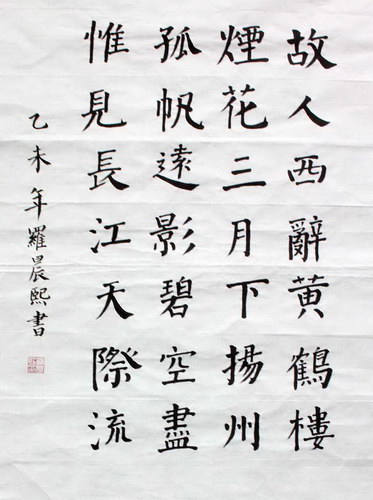 故人西辭黄鶴樓
煙花三月下揚州
孤帆遠影碧空盡
惟見長江天際流
乙未年羅晨熙書